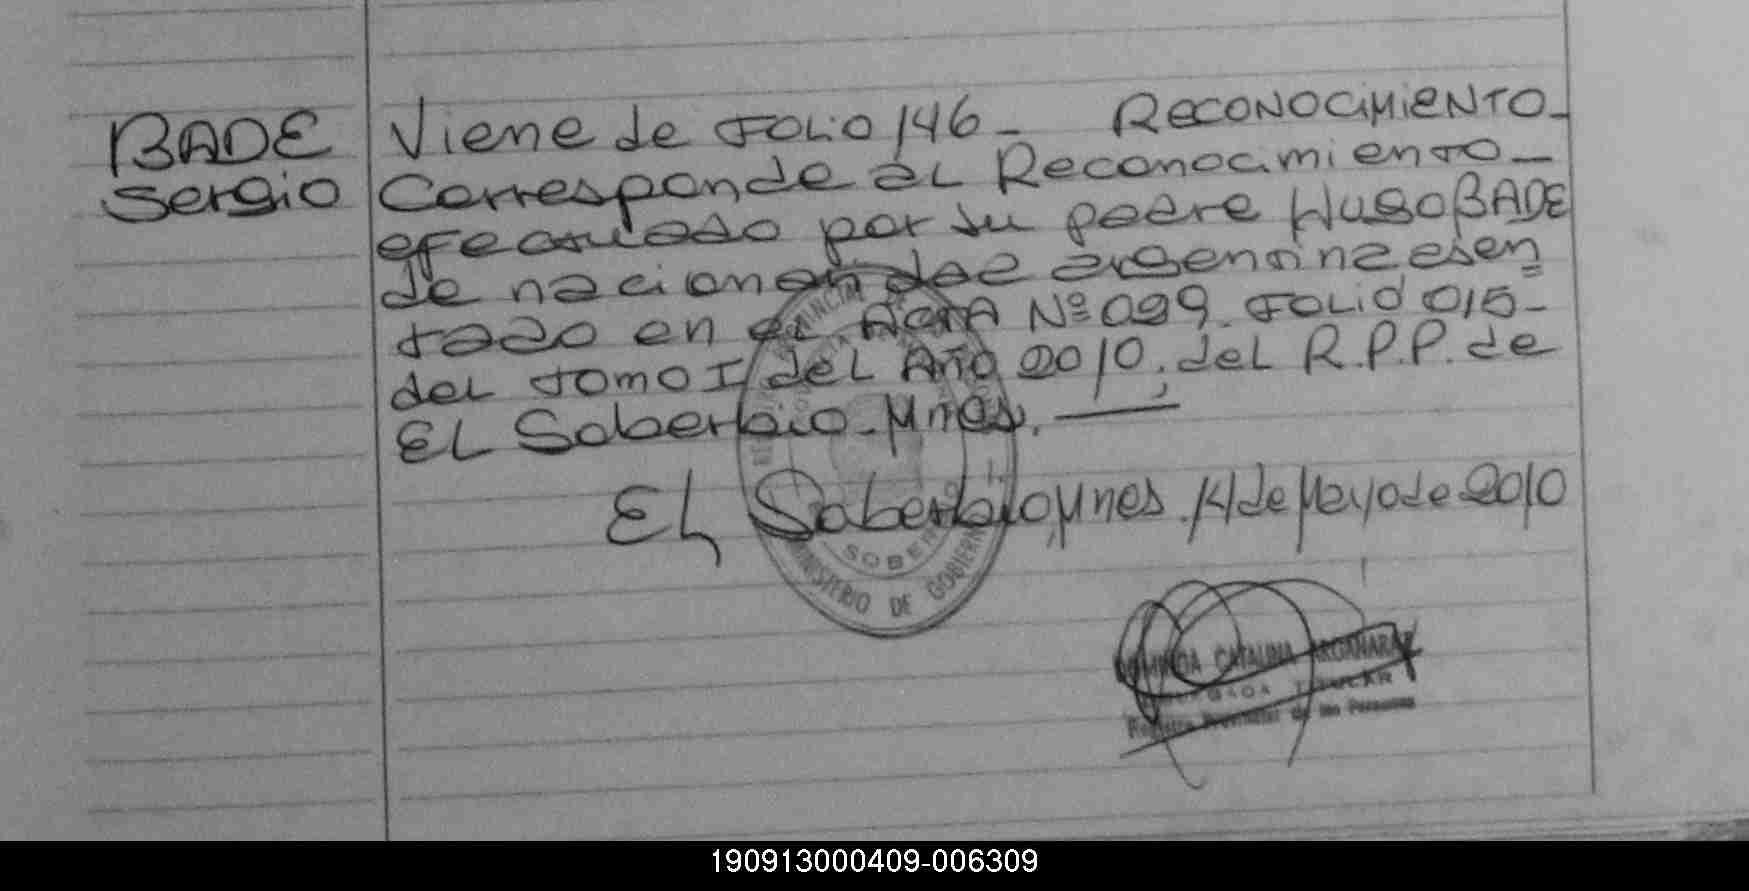 BADE
Sergio
Viene de FOLIO 146 - RECONOCIMIENTO -
Corresponde al Reconocimiento -
efectuado por su padre Hugo BADE
de nacionalidad argentina asen=
tado en el ACTA Nº 099 FOLIO 015 -
del TOMO I del Año 2010, del R.P.P. de
EL Soberbio - Mnes. ———
EL Soberbio, Mnes. 14 de Mayo de 2010
SOBER
MINISTERIO DE GOBIERN
CATALINA ARGAÑARAZ
TITULAR
Registro Provincial de las Personas
190913000409-006309